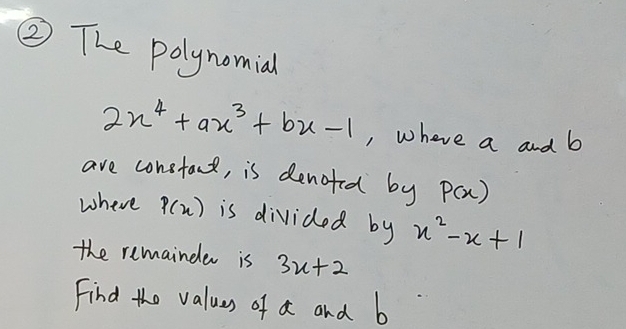 ② The polynomial
2x⁴ + ax³ + bx - 1, where a and b
are constant, is denoted by P(x)
where P(x) is divided by x² - x + 1
the remainder is 3x+2
Find the values of a and b